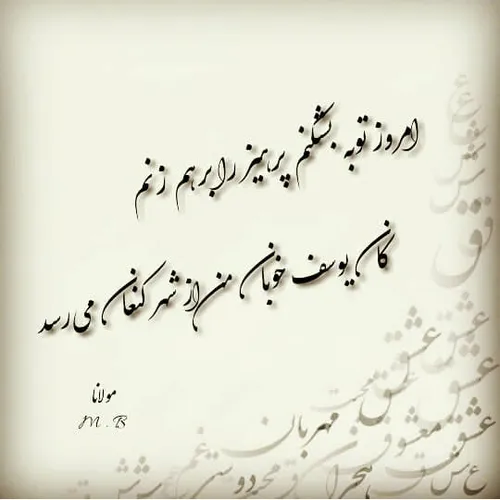 امروز توبه بشکنم پرهیز را برهم زنم
کان یوسف خوبان من از شهر کنعان می رسد
مولانا
M . B
عشق
عشق
عشق
محبت
عشق
مهربان
معشوق
عشق
هجران
دوستی
غم